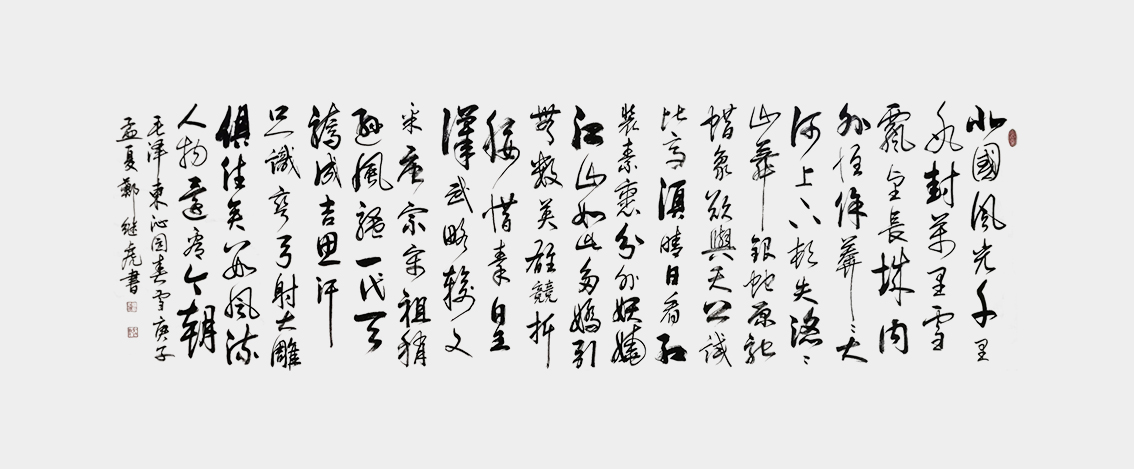 北國風光千里
冰封萬里雪
飄望長城内
外惟馀莽〻大
河上下頓失滔〻
山舞銀蛇原馳
蜡象欲與天公試
比高須晴日看紅
裝素裹分外妖嬈
江山如此多嬌引
無數英雄競折
腰惜秦皇
漢武略輸文
采唐宗宋祖稍
遜風騷一代天
驕成吉思汗
只識彎弓射大雕
俱往矣數風流
人物還看今朝
毛澤東沁园春雪庚子
孟夏鄭继虎書